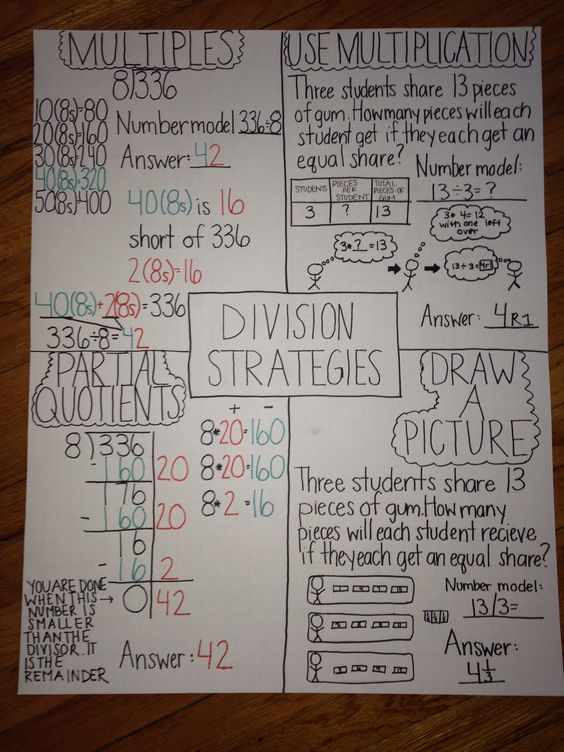 MULTIPLES
8)336
10(8s)=80
20(8s)=160
30(8s)=240
40(8s)=320
50(8s)=400
Number model 336÷8
Answer: 42
40(8s) is 16
short of 336
2(8s)=16
40(8s)+2(8s)=336
336÷8=42
USE MULTIPLICATION
Three students share 13 pieces
of gum. How many pieces will each
student get if they each get an
equal share?
Number model:
13÷3=?
STUDENTS PIECES PER STUDENT TOTAL PIECES OF GUM
3 ? 13
3*?=13
3*4=12
with one left
over
13÷3=4R1
Answer: 4R1
DIVISION
STRATEGIES
PARTIAL
QUOTIENTS
8)336
-160 20
176
-160 20
16
-16 2
0 42
+ -
8*20=160
8*20=160
8*2=16
YOU ARE DONE
WHEN THIS →
NUMBER IS
SMALLER
THAN THE
DIVISOR. IT
IS THE
REMAINDER
Answer: 42
DRAW
A
PICTURE
Three students share 13
pieces of gum. How many
pieces will each student recieve
if they each get an equal share?
Number model:
13/3=
Answer:
4 1/3